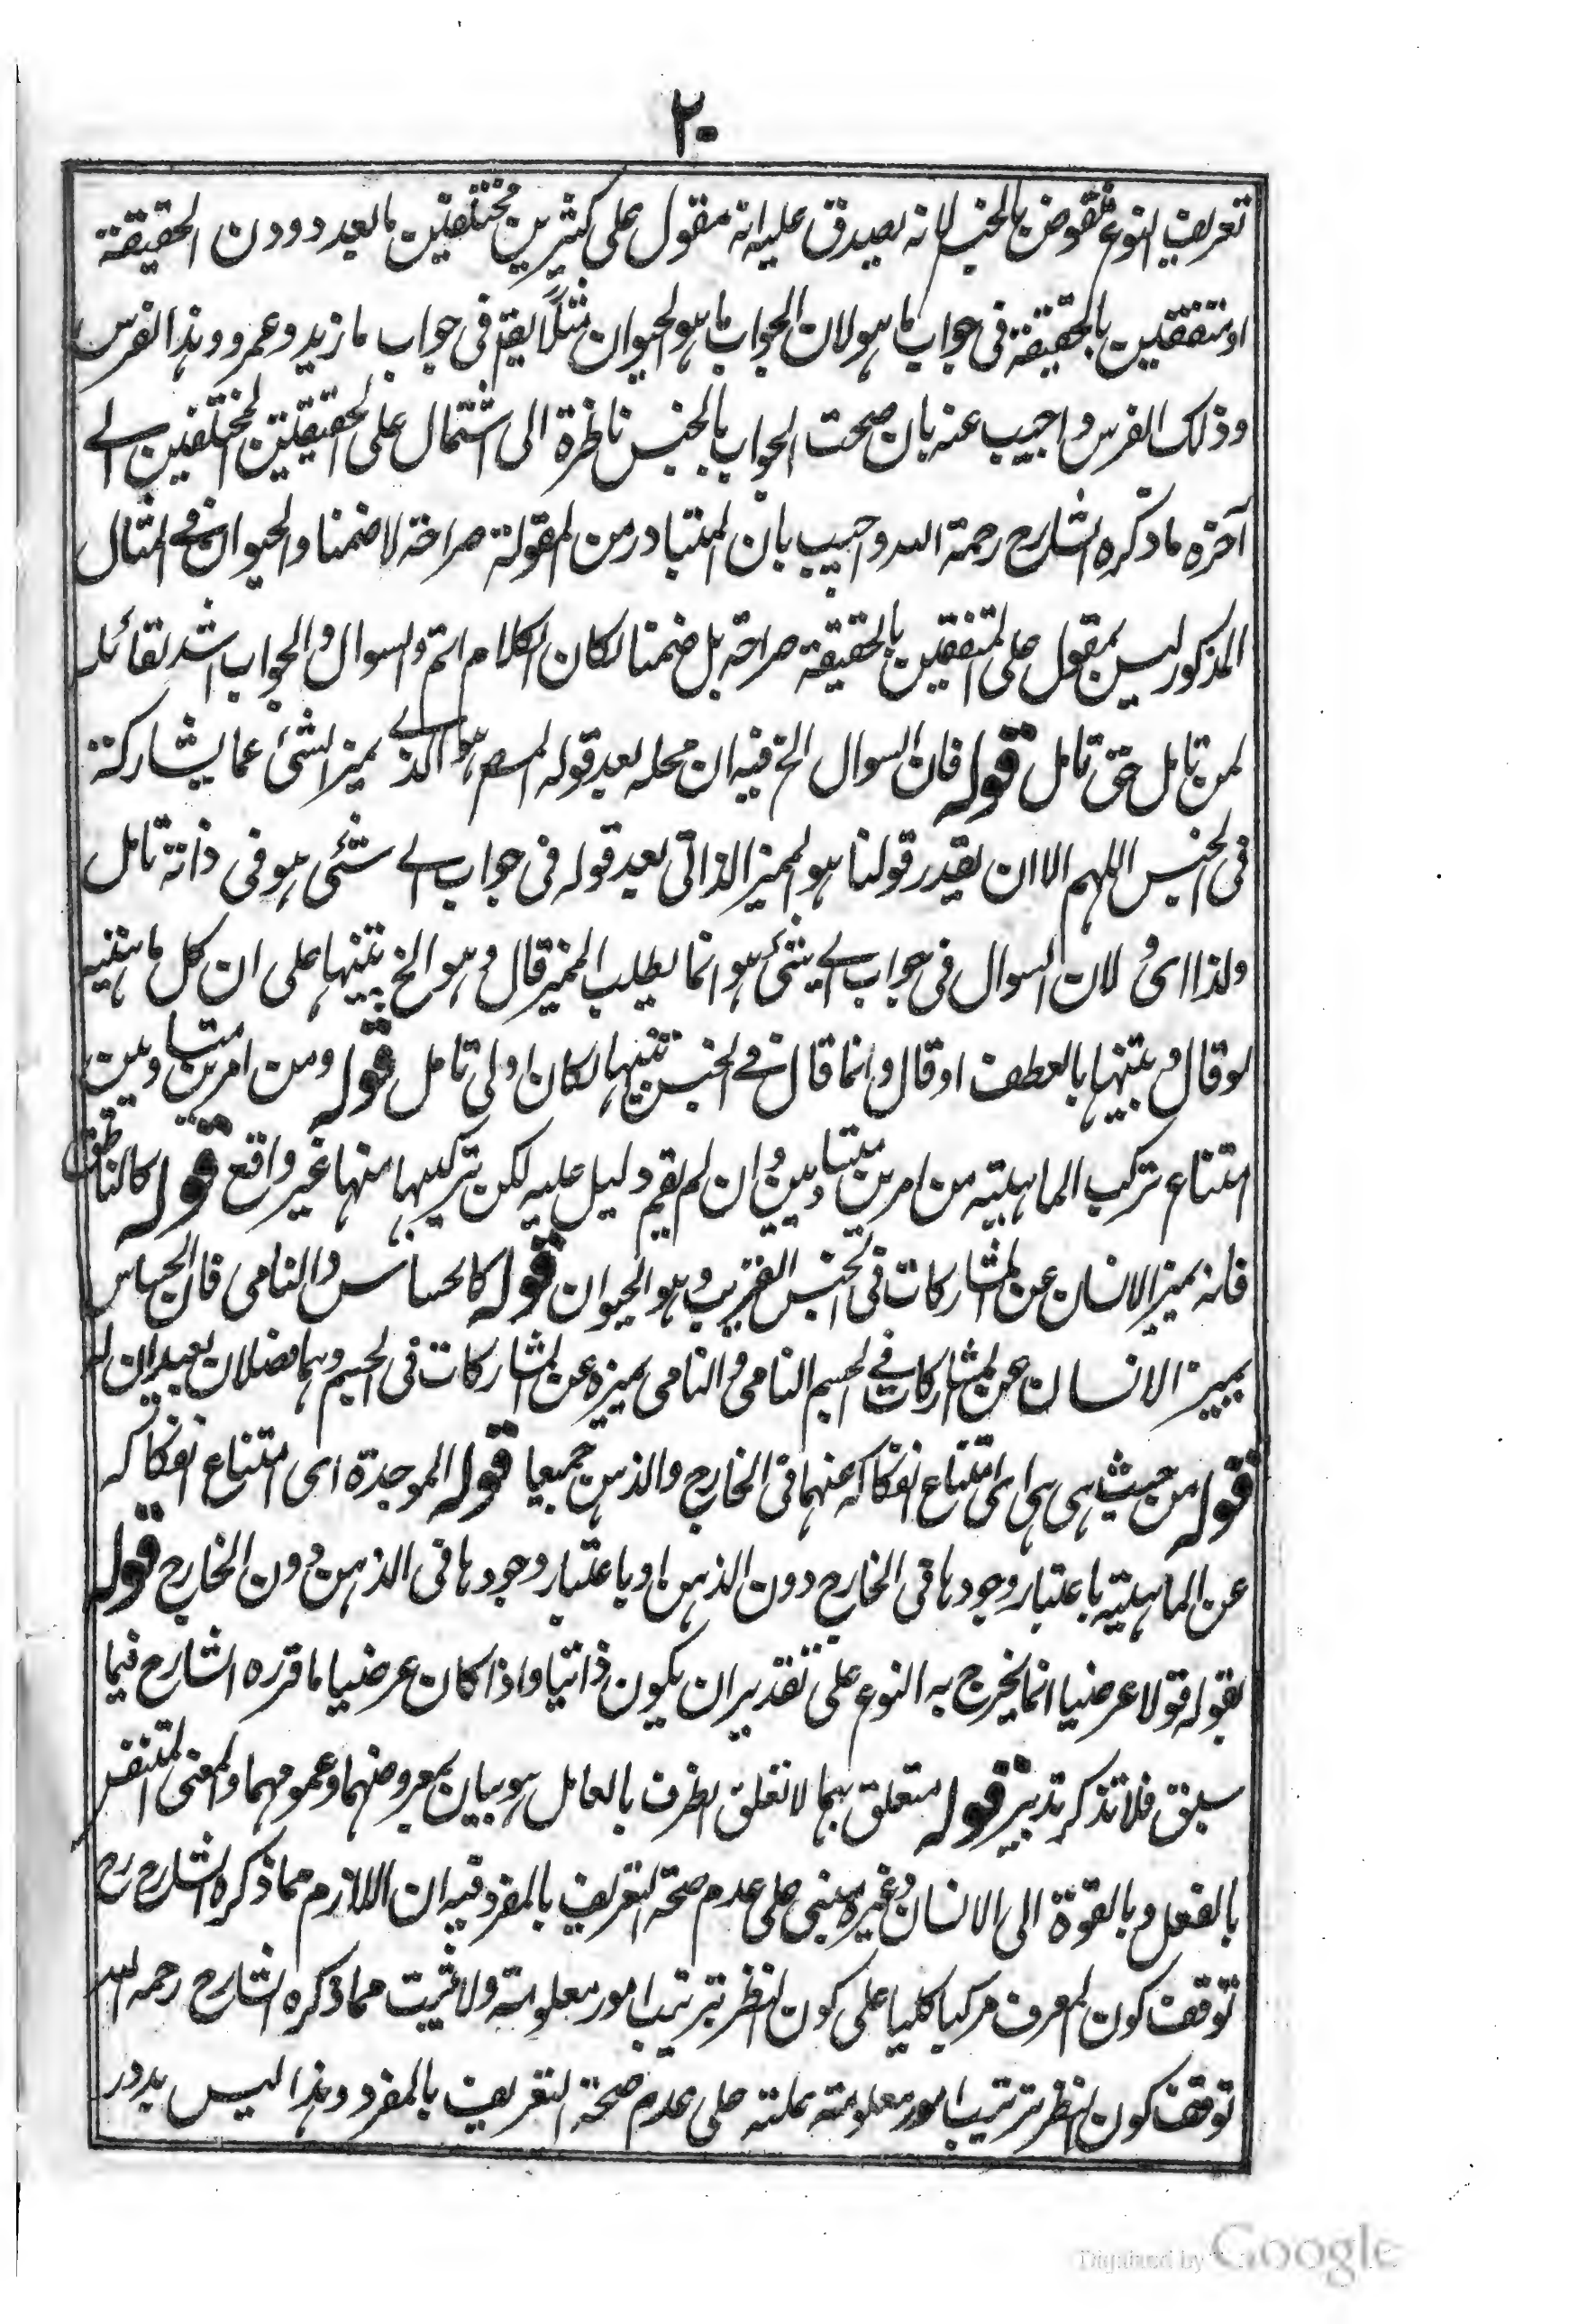 ٢٠
تعريف النوع منقوض بالجنس لانه يصدق عليه انه مقول على كثيرين مختلفين بالعدد دون الحقيقة
او متفقين بالحقيقة فى جواب ما هو لان الجواب ما هو الحيوان مثلا يقع فى جواب ما زيد وعمرو وهذا الفرس
وذلك الفرس واجيب عنه بان صحت الجواب بالجنس ناظرة الى اشتمال على الحقيقتين المختلفتين الے
آخره ما ذكره الشارح رحمة الله واجيب بان المتبادر من المقولة صراحة لا ضمنا والحيوان فے المثال
المذكور ليس بمقول على المتفقين بالحقيقة صراحة بل ضمنا لكان الكلام اتم والسوال والجواب اشد تقابلا
لمن تامل حق تامل قوله فان السوال الخ فيه ان محله بعد قوله المص هو الذے يميز الشئ عما يشاركة
فى الجنس اللهم الا ان يقدر قولنا هو المميز الذاتى بعد قوله فى جواب اے شئى هو فى ذاته تامل
ولذا اى و لان السوال فى جواب اے شئ هو انما يطلب المميز قال و هو الخ تنبيها على ان كل ماهية
لو قال و تنبيها بالعطف او قال وانما قال فے الجنس تنبيها لكان اولى تامل قوله ومن امرين متساويين
امتناع تركب الماهية من امرين متساويين وان لم يقم دليل عليه لكن تركيبها منها غير واقع قوله كالناطق
فانه يميز الانسان عن المشاركات فى الجنس القريب وهو الحيوان قوله كالحساس والنامى فان الحساس
يميز الانسان عن المشاركات فے الجسم النامى والنامى يميزه عن المشاركات فى الجسم وهما فصلان بعيدان له
قوله من حيث هى هى اى امتناع انفكاكه عنهما فى الخارج والذهن جميعا قوله الموجدة اى امتناع انفكاكه
عن الماهية باعتبار وجودها فى الخارج دون الذهن او باعتبار وجودها فى الذهن دون الخارج قوله
بقوله قولا عرضيا انما يخرج به النوع على تقدير ان يكون ذاتيا واذا كان عرضيا ما قرره الشارح فيما
سبق فلا تذكر تدبر قوله متعلق بهما لا تعلق الظرف بالعامل هو بيان بمعروضهما وعمومهما والمعنى المتنفس
بالفعل وبالقوة الى الانسان وغيره مبنى على عدم صحة التعريف بالمفرد فيه ان اللازم مما ذكره الشارح رح
توقف كون المعرف مركبا كليا على كون النظر ترتيب امور معلومة ولا يثبت مما ذكره الشارح رحمه الله
توقف كون النظر ترتيب امور معلومة علته على عدم صحة التعريف بالمفرد وهذا ليس بدور
Digitized by Google